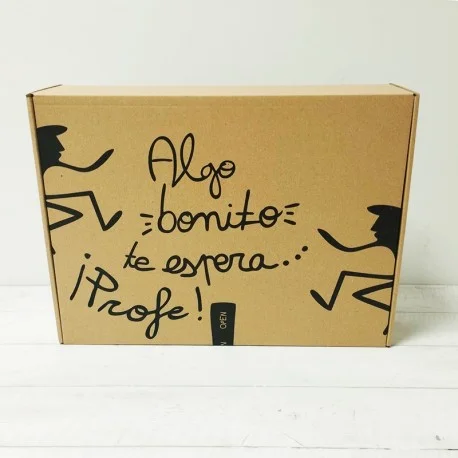 Algo
bonito
te espera...
¡Profe!
OPEN